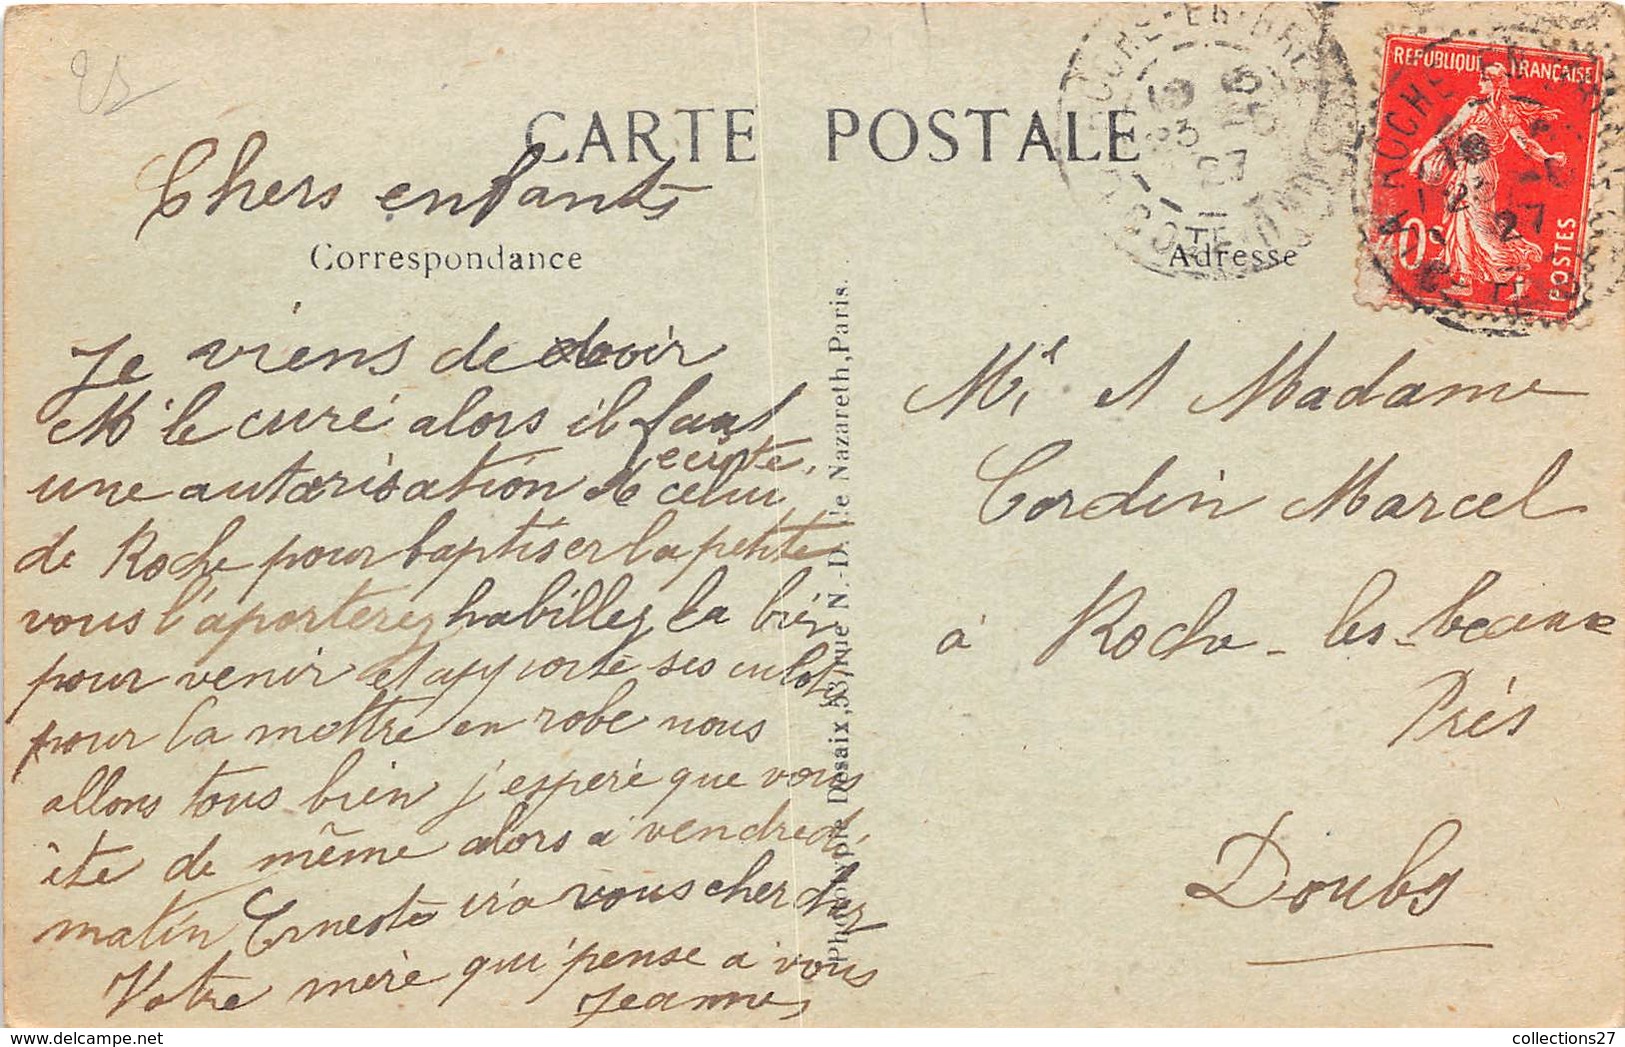 CARTE POSTALE
Chers enfants
Correspondance
Je viens de voir
Mr le curé alors il faut
ecrite,
une autorisation de celui
de Roche pour baptiser la petite
vous l'aporterez habillez la bien
pour venir et apporte ses culots
pour la mettre en robe nous
allons tous bien j'espere que vous
ête de même alors a vendredi
matin Erneste ira vous chercher
Votre mère qui pense a vous
Jeanne
Phototypie Desaix, 53, rue N.-D. de Nazareth, Paris.
Adresse
REPUBLIQUE FRANÇAISE
POSTES
27
27
Mr et Madame
Cordin Marcel
à Roche-les-beaux
Prés
Doubs
collections27